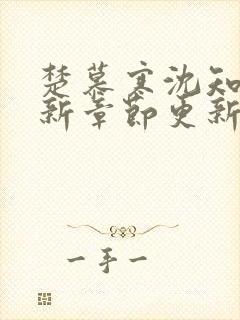 楚慕寒沈知
新章節更新
一手一